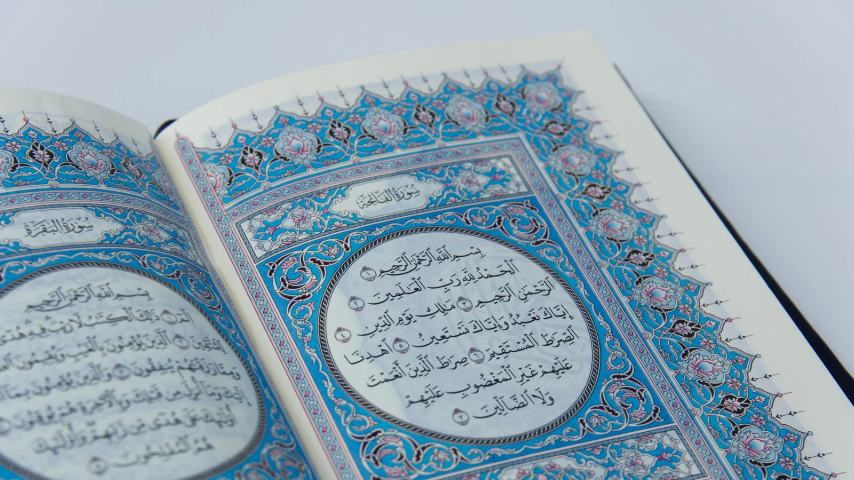 سُورَةُ الْفَاتِحَةِ
بِسْمِ ٱللَّهِ ٱلرَّحْمَٰنِ ٱلرَّحِيمِ ١
ٱلْحَمْدُ لِلَّهِ رَبِّ ٱلْعَٰلَمِينَ ٢
ٱلرَّحْمَٰنِ ٱلرَّحِيمِ ٣ مَٰلِكِ يَوْمِ ٱلدِّينِ ٤
إِيَّاكَ نَعْبُدُ وَإِيَّاكَ نَسْتَعِينُ ٥ ٱهْدِنَا
ٱلصِّرَٰطَ ٱلْمُسْتَقِيمَ ٦ صِرَٰطَ ٱلَّذِينَ أَنْعَمْتَ
عَلَيْهِمْ غَيْرِ ٱلْمَغْضُوبِ عَلَيْهِمْ
وَلَا ٱلضَّآلِّينَ ٧
سُورَةُ الْبَقَرَةِ
بِسْمِ ٱللَّهِ ٱلرَّحْمَٰنِ ٱلرَّحِيمِ
الٓمٓ ١ ذَٰلِكَ ٱلْكِتَٰبُ لَا رَيْبَ فِيهِ هُدًى
لِّلْمُتَّقِينَ ٢ ٱلَّذِينَ يُؤْمِنُونَ بِٱلْغَيْبِ وَيُقِيمُونَ
وَمِمَّا رَزَقْنَٰهُمْ يُنفِقُونَ ٣ وَٱلَّذِينَ يُؤْمِنُونَ
إِلَيْكَ وَمَآ أُنزِلَ مِن قَبْلِكَ وَبِٱلْءَاخِرَةِ هُمْ يُوقِنُونَ
أُو۟لَٰٓئِكَ عَلَىٰ هُدًى مِّن رَّبِّهِمْ وَأُو۟لَٰٓئِكَ
هُمُ ٱلْمُفْلِحُونَ ٥